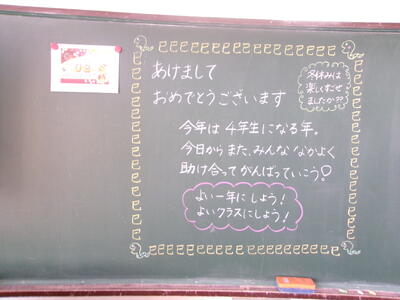 あけまして
おめでとうございます
冬休みは
楽しくすごせ
ましたか??
今年は4年生になる年。
今日からまた、みんななかよく
助け合ってがんばっていこう♡
よい一年にしよう!
よいクラスにしよう!